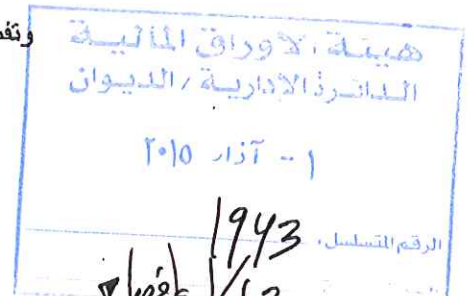 وتفض
هيئة الأوراق المالية
الدائرة الإدارية / الديوان
٠١ آذار ٢٠١٥
الرقم المتسلسل. 1943